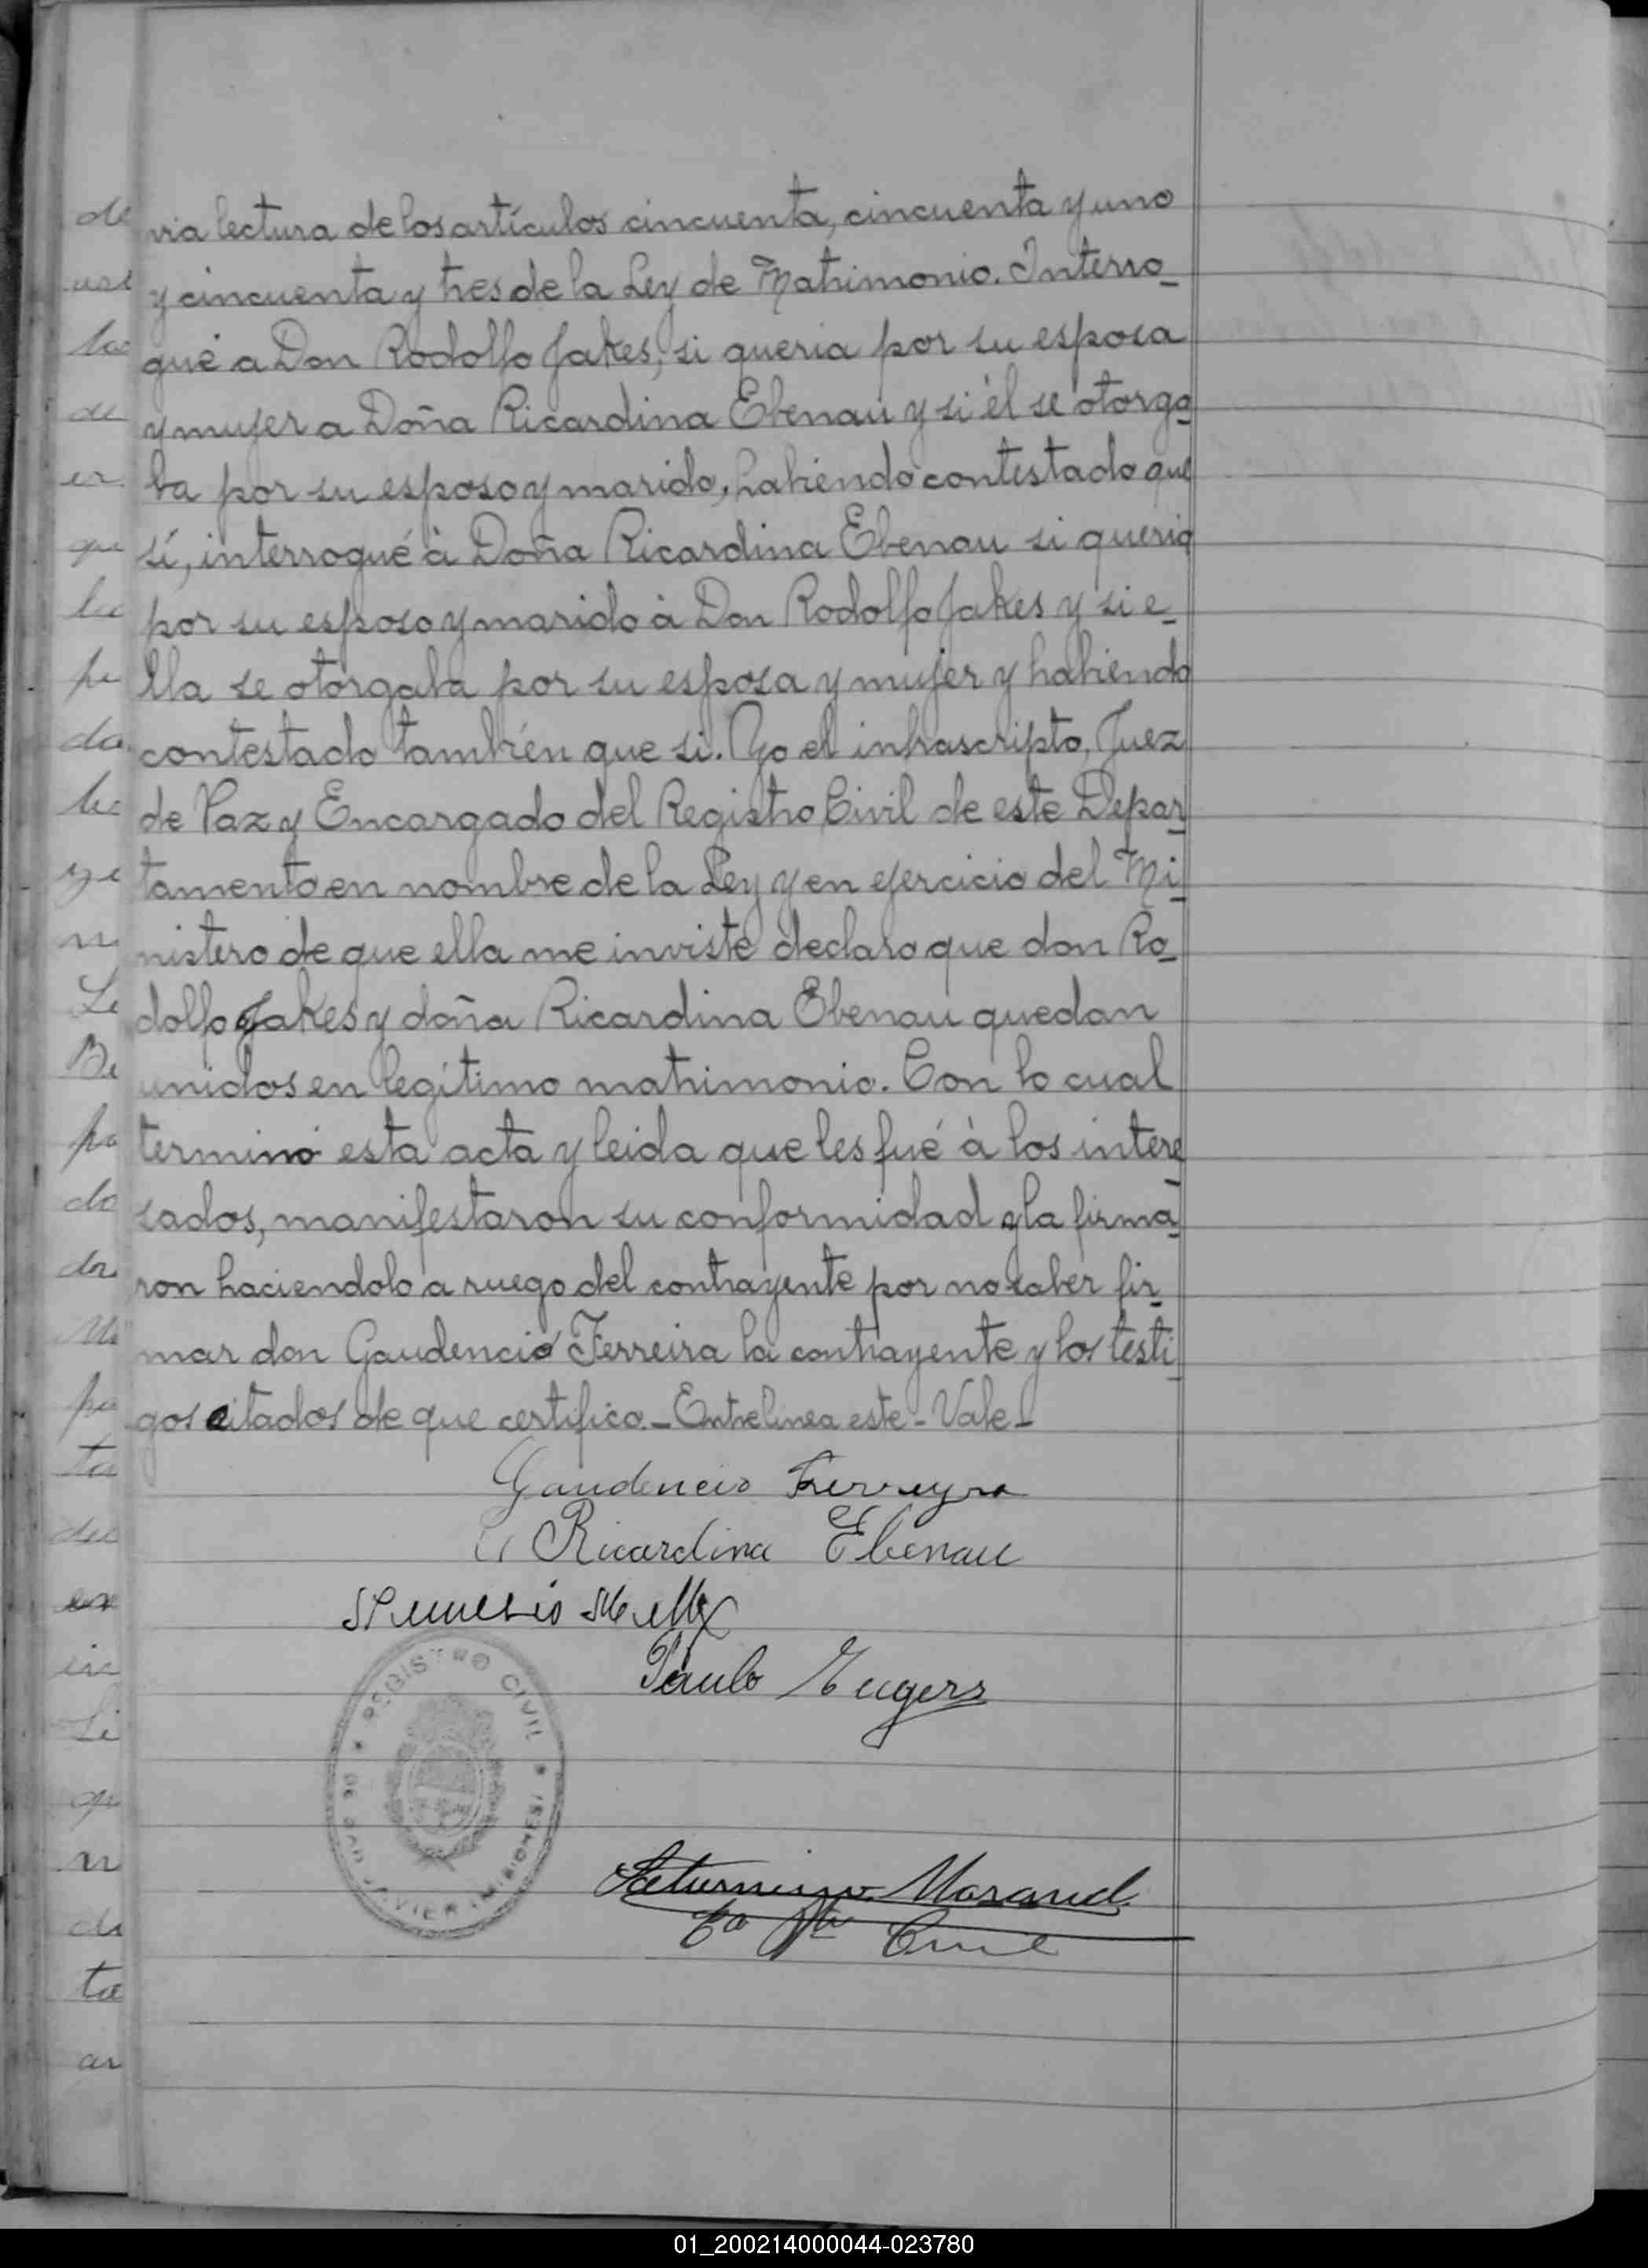 via lectura de los artículos cincuenta, cincuenta y uno
y cincuenta y tres de la Ley de Matrimonio. Interro_
gué a Don Rodolfo Jakes, si queria por su esposa
y mujer a Doña Ricardina Ebenau y si él se otorga
ba por su esposo y marido, habiendo contestado que
sí, interrogué à Doña Ricardina Ebenau si queria
por su esposo y marido à Don Rodolfo Jakes y si e_
lla se otorgaba por su esposa y mujer y habiendo
contestado también que si. Yo el infrascripto, Juez
de Paz y Encargado del Registro Civil de este Depar_
tamento en nombre de la Ley y en ejercicio del Mi_
nistero de que ella me inviste declaro que don Ro_
dolfo Jakes y doña Ricardina Ebenau quedan
unidos en legítimo matrimonio. Con lo cual
terminó esta acta y leida que les fué à los intere_
sados, manifestaron su conformidad y la firma_
ron haciendolo a ruego del contrayente por no saber fir_
mar don Gaudencio Ferreira la contrayente y los testi_
gos citados de que certifico._Entrelinea este-Vale-
Gaudencio Ferreyra
Ricardina Ebenau
Paulo Eugers
REGISTRO CIVIL
DE SAN JAVIER (MISIONES)
Saturnino Morand
01_200214000044-023780